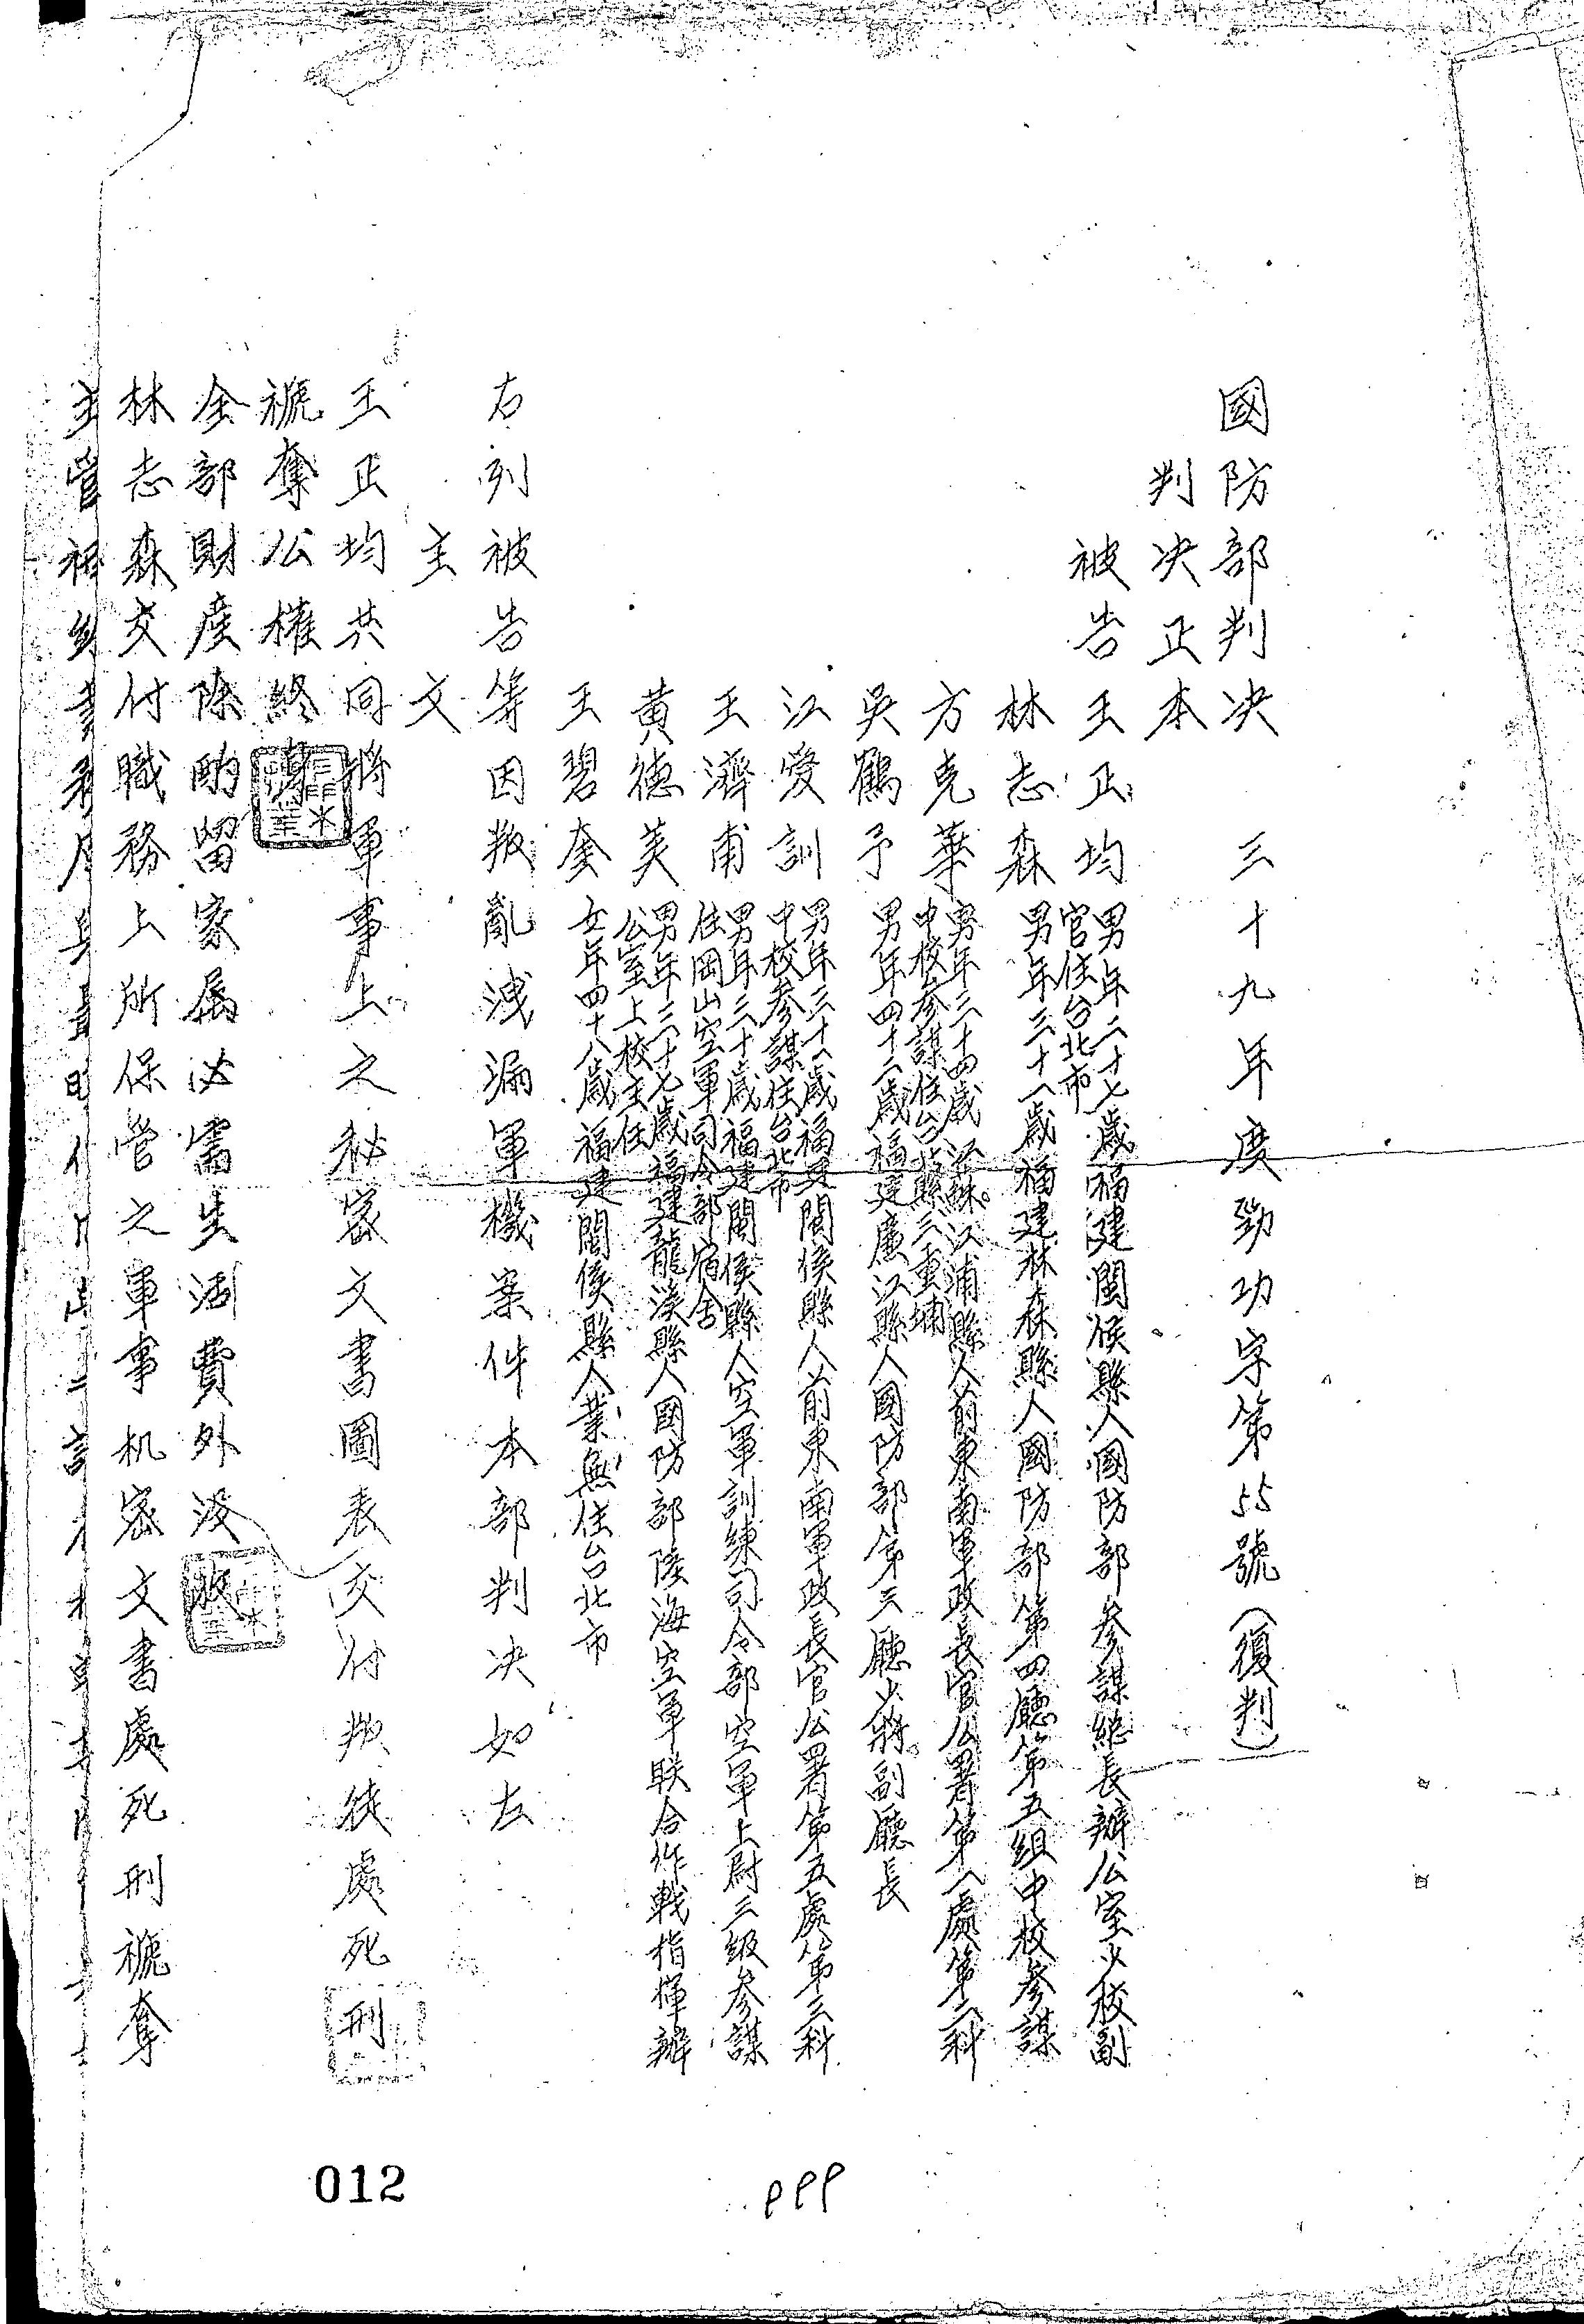 國防部判決 三十九年度勁功字第55號(復判)
判決正本
被告 王正均 男年二十七歲福建閩侯縣人國防部參謀總長辦公室少校副
官住台北市
林志森 男年三十一歲福建林森縣人國防部第四廳第五組中校參謀
方克華 男年三十四歲江蘇江浦縣人前東南軍政長官公署第八處第二科
中校參謀住台北縣三重埔
吳鶴予 男年四十二歲福建廉江縣人國防部第三廳少將副廳長
江愛訓 男年三十八歲福建閩侯縣人前東南軍政長官公署第五處第三科
中校參謀住台北市
王濟甫 男年三十歲福建閩侯縣人空軍訓練司令部空軍上尉三級參謀
住岡山空軍司令部宿舍
黃德美 男年三十七歲福建龍溪縣人國防部陸海空軍联合作戰指揮辦
公室上校主任
王碧奎 女年四十八歲福建閩侯縣人業無住台北市
右列被告等因叛亂洩漏軍機案件本部判決如左
主文
王正均共同將軍事上之秘密文書圖表交付叛徒處死刑
褫奪公權終身
全部財產除酌留家屬必需生活費外沒收
林志森交付職務上所保管之軍事机密文書處死刑褫奪
012